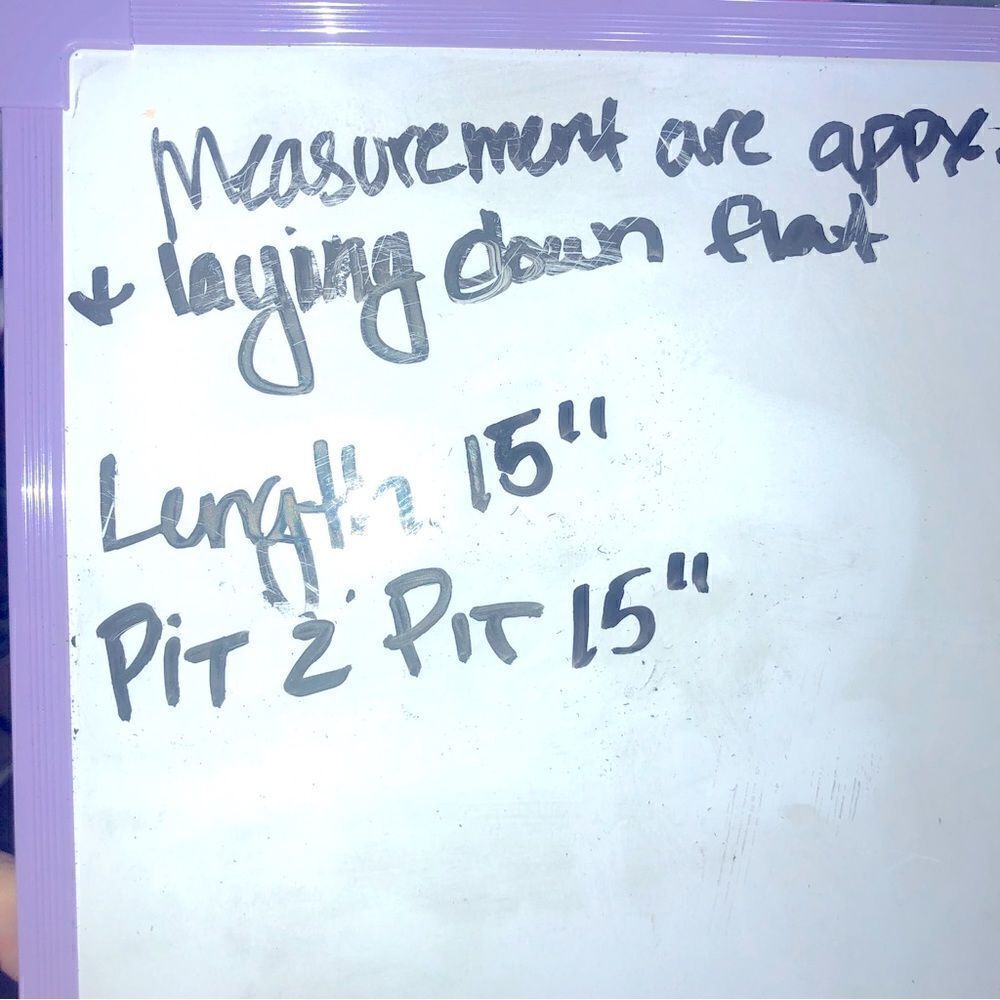 Measurement are appx.
↓ laying down flat
Length 15"
PiT 2 PiT 15"